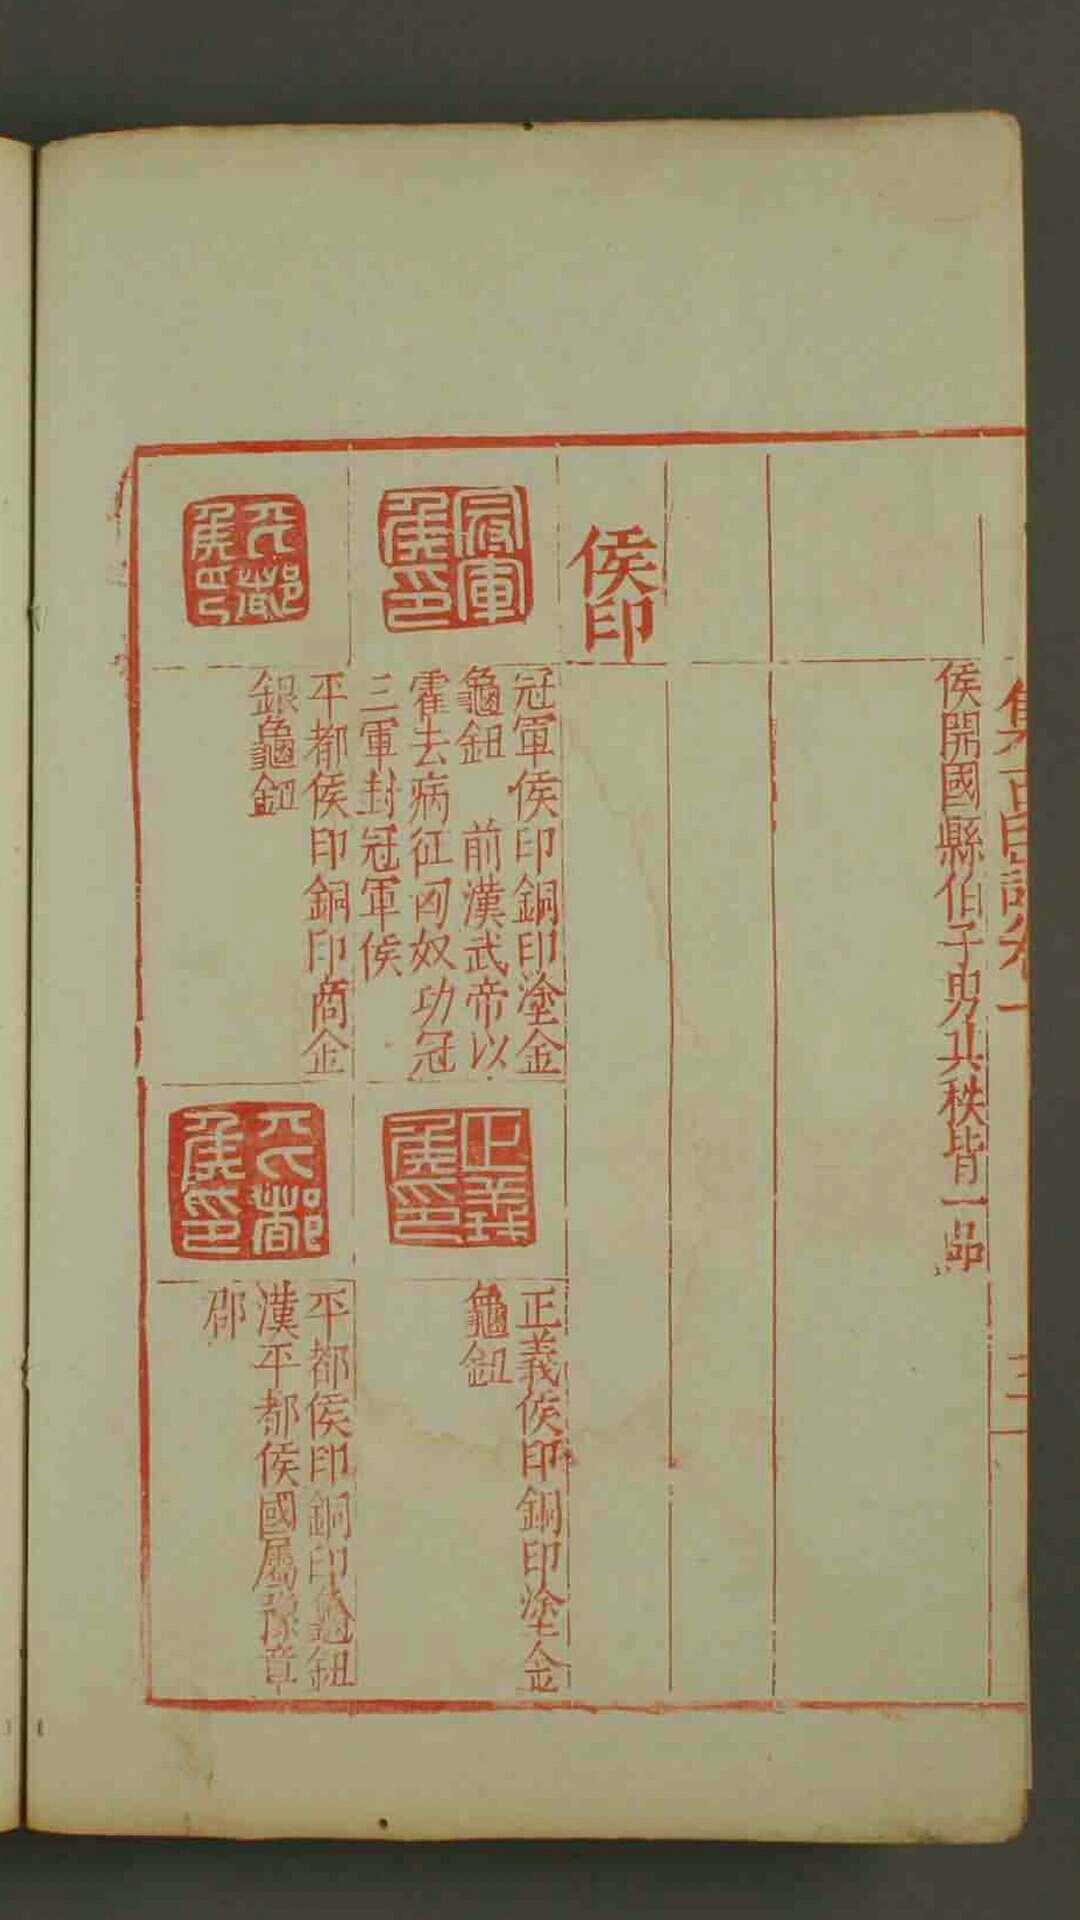 集古印譜卷一
三
侯開國縣伯子男其秩皆一品
侯印
冠軍侯印
冠軍侯印銅印塗金
龜鈕 前漢武帝以
霍去病征匈奴功冠
三軍封冠軍侯
正義侯印
正義侯印銅印塗金
龜鈕
平都侯印
平都侯印銅印商金
銀龜鈕
平都侯印
平都侯印銅印龜鈕
漢平都侯國屬豫章
郡